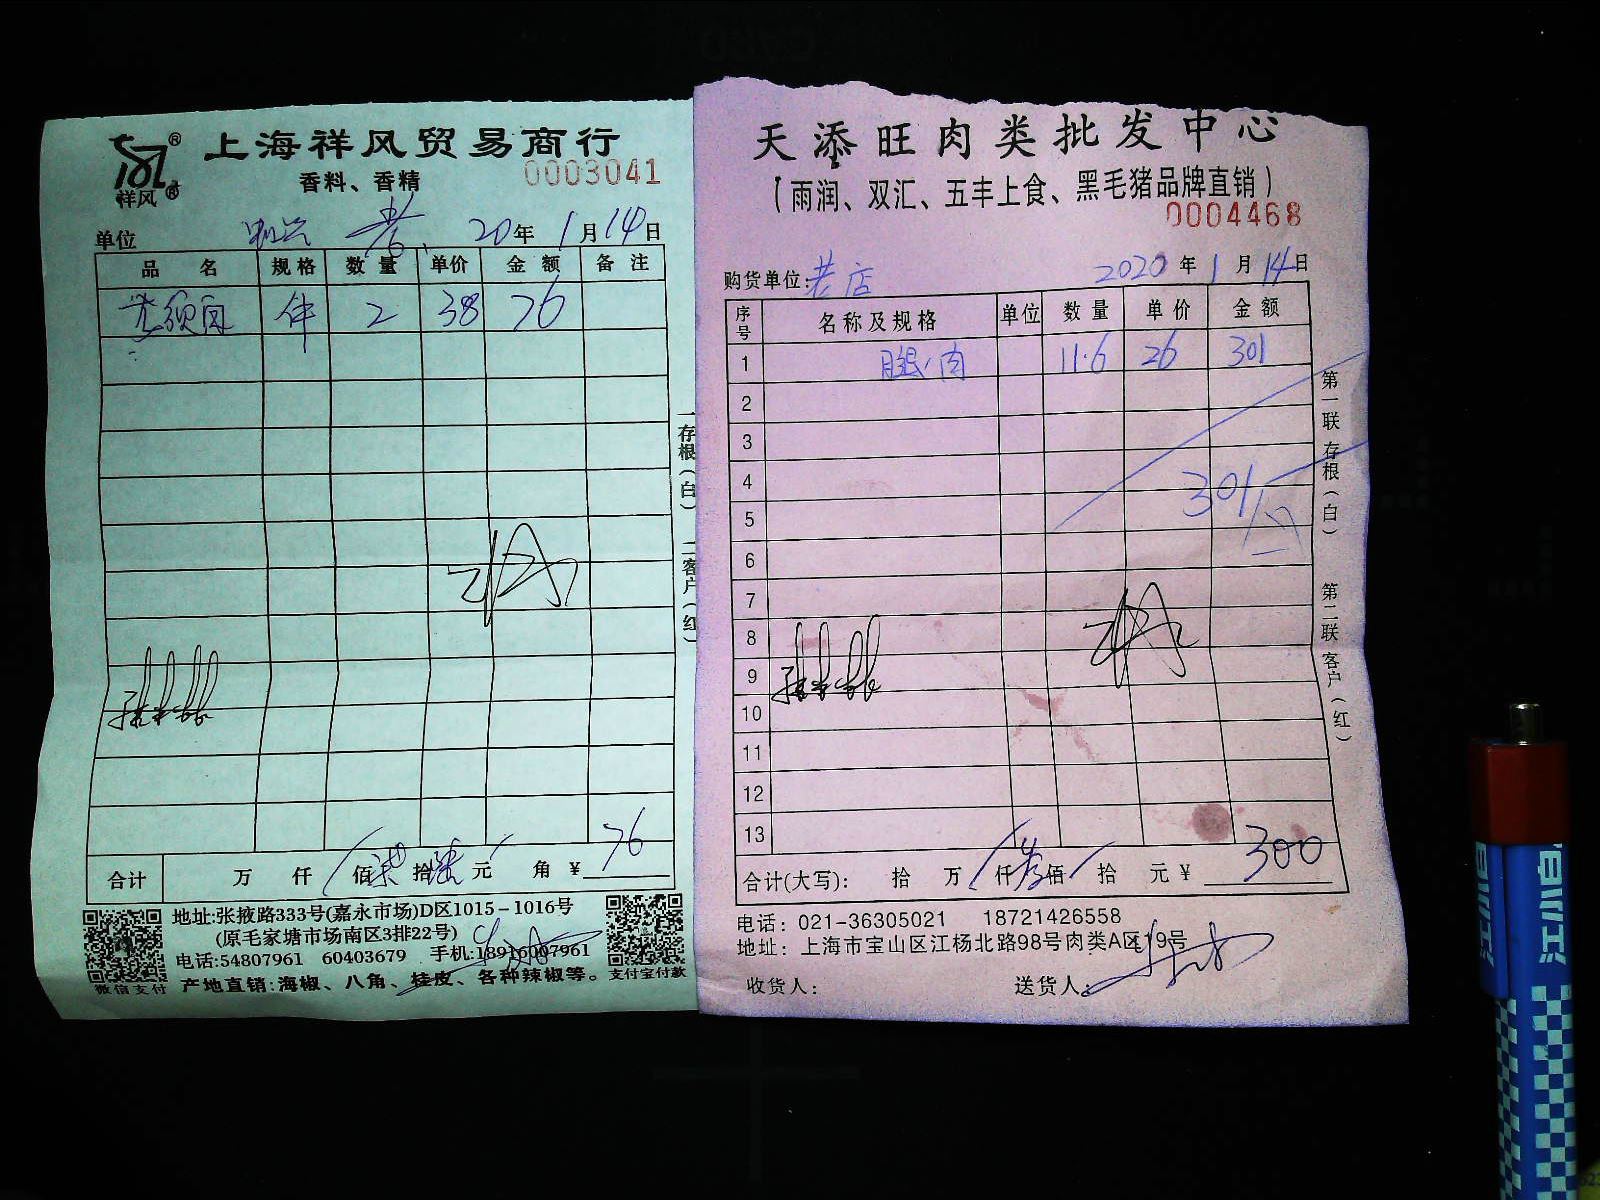 上海祥风贸易商行
祥风
香料、香精
0003041
单位 20年1月14日
品名 规格 数量 单价 金额 备注
件 2 38 76
一存根（白） 二客户（红）
合计 万 仟 佰 柒 拾 陆 元 角 ¥ 76
地址:张掖路333号(嘉永市场)D区1015-1016号
(原毛家塘市场南区3排22号)
电话:54807961 60403679 手机:18916007961
产地直销:海椒、八角、桂皮、各种辣椒等。
微信支付
支付宝付款
天添旺肉类批发中心
（雨润、双汇、五丰上食、黑毛猪品牌直销）
0004468
购货单位:老店 2020年1月14日
序号 名称及规格 单位 数量 单价 金额
1 腿肉 11.6 26 301
2
3
4
5
301
6
7
8
9
10
11
12
13
第一联 存根（白） 第二联 客户（红）
合计(大写): 拾 万 仟 叁 佰 拾 元 ¥ 300
电话: 021-36305021 18721426558
地址: 上海市宝山区江杨北路98号肉类A区19号
收货人: 送货人: